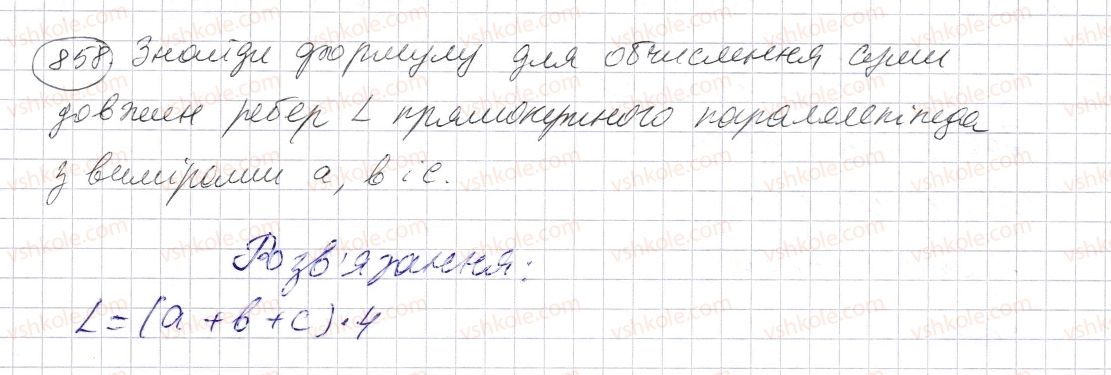 858. Знайди формулу для обчислення суми
довжин ребер L прямокутного паралелепіпеда
з вимірами a, b і c.
Розв'язання:
L = (a + b + c) · 4